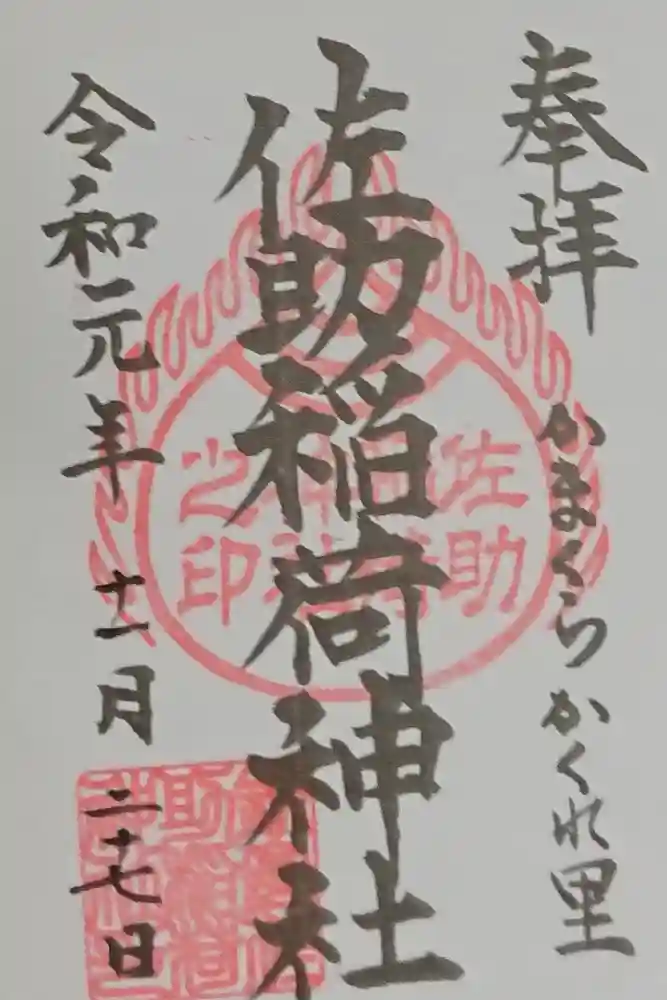 奉拝
かまくらかくれ里
佐助稲荷神社
佐助稲荷神社之印
令和元年 十一月 二十七日